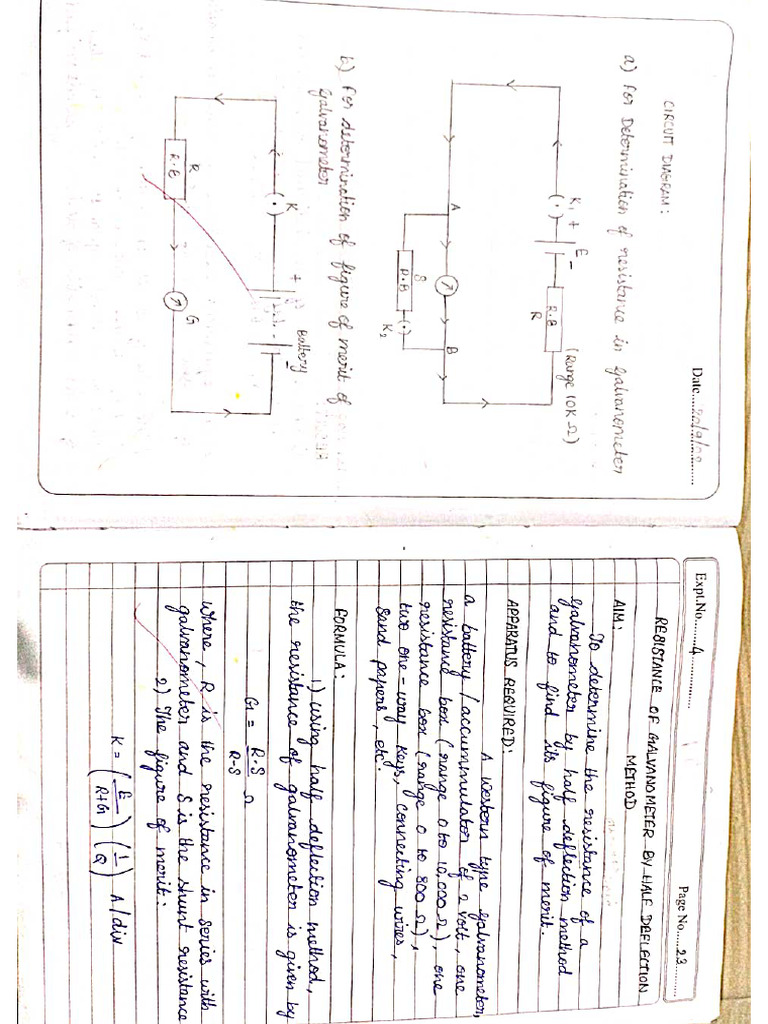 Date.....20/9/22
CIRCUIT DIAGRAM:
a) For Determination of resistance in galvanometer
K1 + E - R.B (Range 10K Ω)
R
A B
S
R.B (·)
K2
b) For determination of figure of merit of
galvanometer
K + Battery -
R
R.B G
Expt.No.......4 Page No.....23
RESISTANCE OF GALVANOMETER BY HALF DEFLECTION
METHOD
AIM:
To determine the resistance of a
galvanometer by half deflection method
and to find its figure of merit.
APPARATUS REQUIRED:
A Western type galvanometer,
a battery/accummulator of 2 volt, one
resistance box (range 0 to 10,000 Ω), one
resistance box (range 0 to 800 Ω),
two one-way keys, connecting wires,
sand papers, etc.
FORMULA:
1) using half deflection method,
the resistance of galvanometer is given by
G = R.S / R-S Ω
Where, R is the resistance in series with
galvanometer and S is the shunt resistance
2) The figure of merit:
K = (E / R+G) (1 / Q) A/div